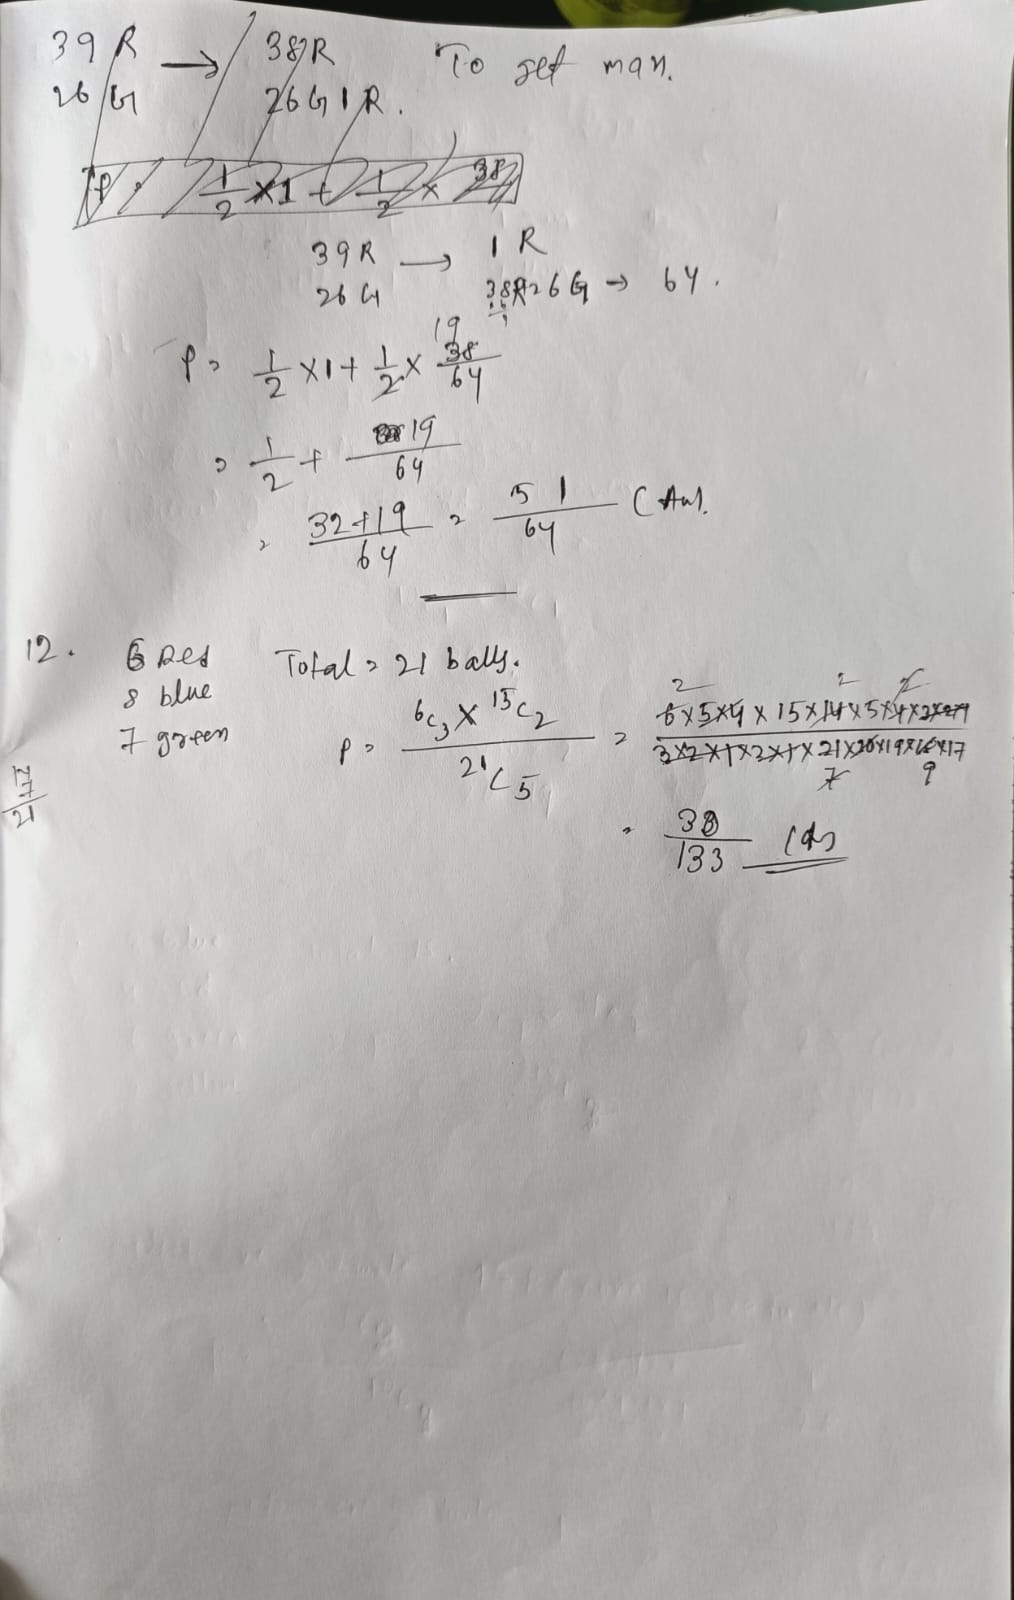 39 R → 38R To get max.
26 G 26G 1R.
P = 1/2 × 1 + 1/2 × 38
39R → 1 R
26 G 38R 26 G → 64.
P = 1/2 × 1 + 1/2 × 38/64 19
= 1/2 + 19/64
= 32+19/64 = 51/64 (Ans.
12. 6 Red Total = 21 balls.
8 blue
7 green P = 6C3 × 15C2 / 21C5 = 6×5×4 × 15×14×5×4×3×2×1 / 3×2×1×2×1×21×20×19×18×17
2 2 2
7 9
17/21
= /133